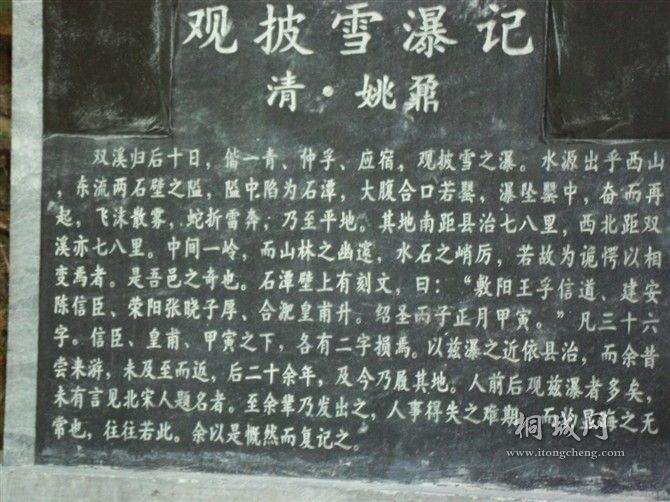 观披雪瀑记
清·姚鼐
双溪归后十日，偕一青、仲孚、应宿，观披雪之瀑。水源出乎西山
，东流两石壁之隘，隘中陷为石潭，大腹合口若罂，瀑坠罂中，奋而再
起，飞沫散雾，蛇折雷奔，乃至平地。其地南距县治七八里，西北距双
溪亦七八里。中间一岭，而山林之幽邃，水石之峭厉，若故为诡愕以相
变焉者。是吾邑之奇也。石潭壁上有刻文，曰：“敷阳王孚信道、建安
陈信臣、荣阳张晓子厚、合淝皇甫升。绍圣丙子正月甲寅。”凡三十六
字。信臣、皇甫、甲寅之下，各有二字损焉。以兹瀑之近依县治，而余昔
尝来游，未及至而返，后二十余年，及今乃履其地。人前后观兹瀑者多矣，
未有言见北宋人题名者。至余辈乃发出之，人事得失之难期，而物显晦之无
常也，往往若此。余以是慨然而复记之。
桐城网
www.itongcheng.com